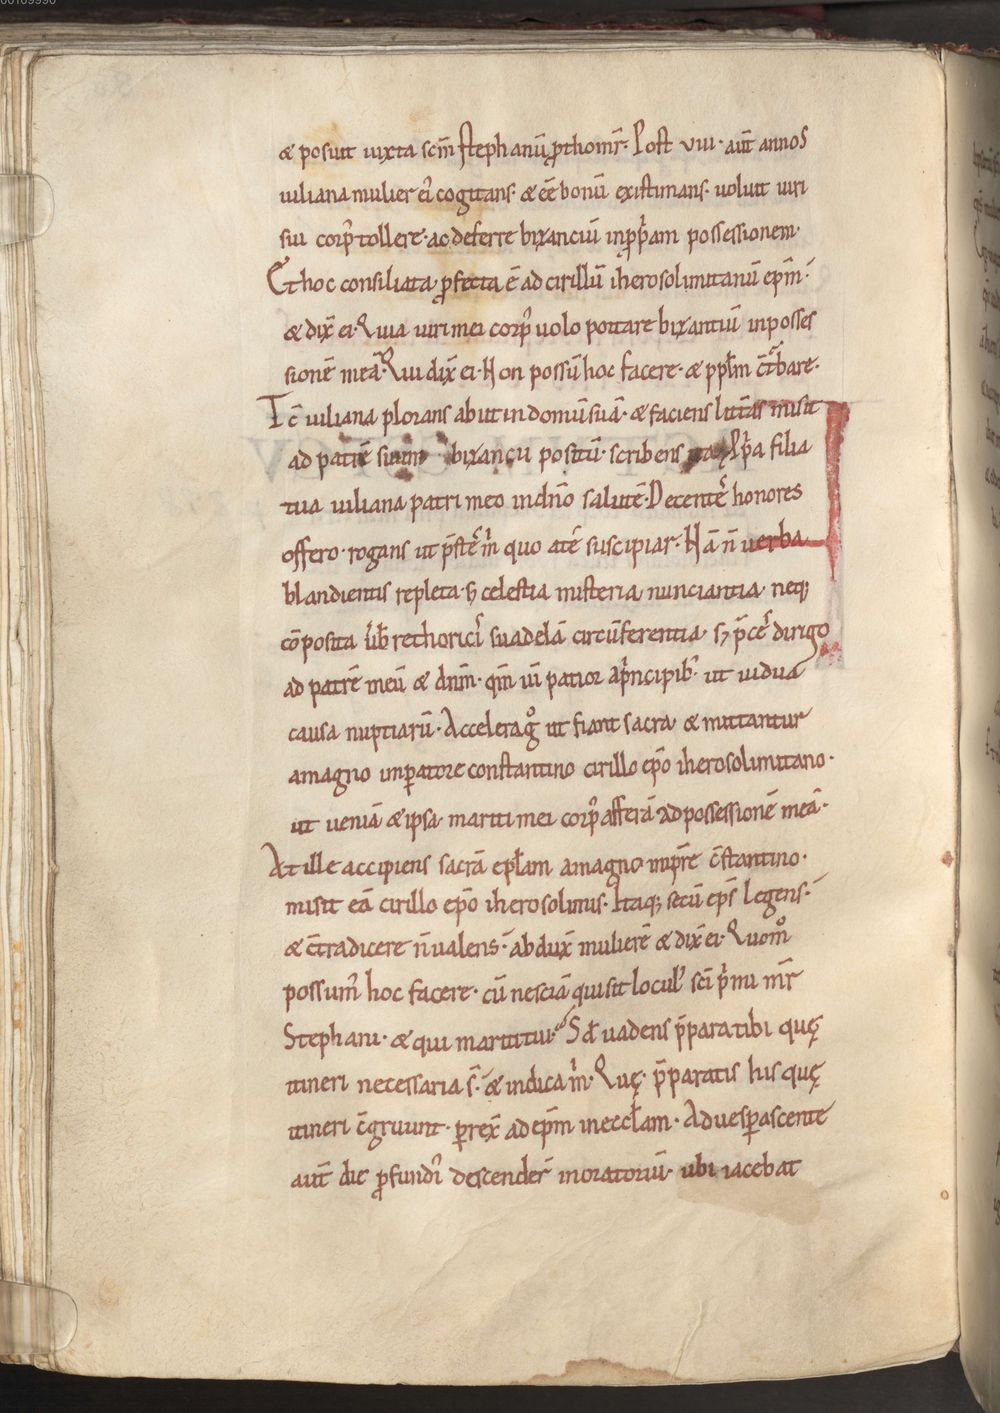 & posuit iuxta scm̄ stephanū ꝓthomr̄. Post viii. aut̄ annos
iuliana mulier ei᷒ cogitans. & ēē bonū existimans. uoluit uiri
sui corp᷒ tollere. ac deferre bixanciū in ꝓp̄am possessionem.
Et hoc consiliata, ꝓfecta ē ad cirillū iherosolimitanū ep̄m.
& dix̄ ei. Quia uiri mei corp᷒ uolo portare bixantiū in posses
sionē meā. Qui dix̄ ei. Non possū hoc facere. & ppl̄m c̄t̄bare.
Tc̄ iuliana plorans abiit in domū suā. & faciens litt̄as misit
ad patrē suum bixancii positū. scribens ita. Pp̄a filia
tua iuliana patri meo in dn̄o salutē. Decent᷒ honores
offero. rogans ut p̄stet᷒ m̄ quo a te suscipiar. Nā n̄ uerba
blandientis repleta. s; celestia misteria nunciantia. neq;
cōposita ūb̄ rethorici᷒ suadelā circūferentia, s; p̄ces dirigo
ad patrē meū & dn̄m. qm̄ uī patior a p̄ncipib᷒. ut uidua
causa nuptiarū. Accelera gͦ ut fiant sacra & mittantur
a magno imꝑatore constantino cirillo ep̄o iherosolimitano.
ut ueniā & ipsa. mariti mei corp᷒ afferā ad possessionē meā.
At ille accipiens sacrā epl̄am a magno imp̄re c̄stantino.
misit eā cirillo ep̄o iherosolimis. Itaq; sc̄tū ep̄s legens.
& c̄tradicere n̄ ualens. abdux̄ mulierē & dix̄ ei. Quomͦ
possum᷒ hoc facere. cū nesciā qui sit locul᷒ sc̄i p̄mi mr̄
Stephani. & qui mariti tui. Sꝫ uadens p̄para tibi quę
itineri necessaria s̄. & indica m̄. Quę. p̄paratis his quę
itineri c̄gruunt. ꝑrex̄ ad ep̄m in eccl̄am. Aduesꝑascente
aut̄ die ꝓfundi᷒ descender̄ in oratoriū. ubi iacebat